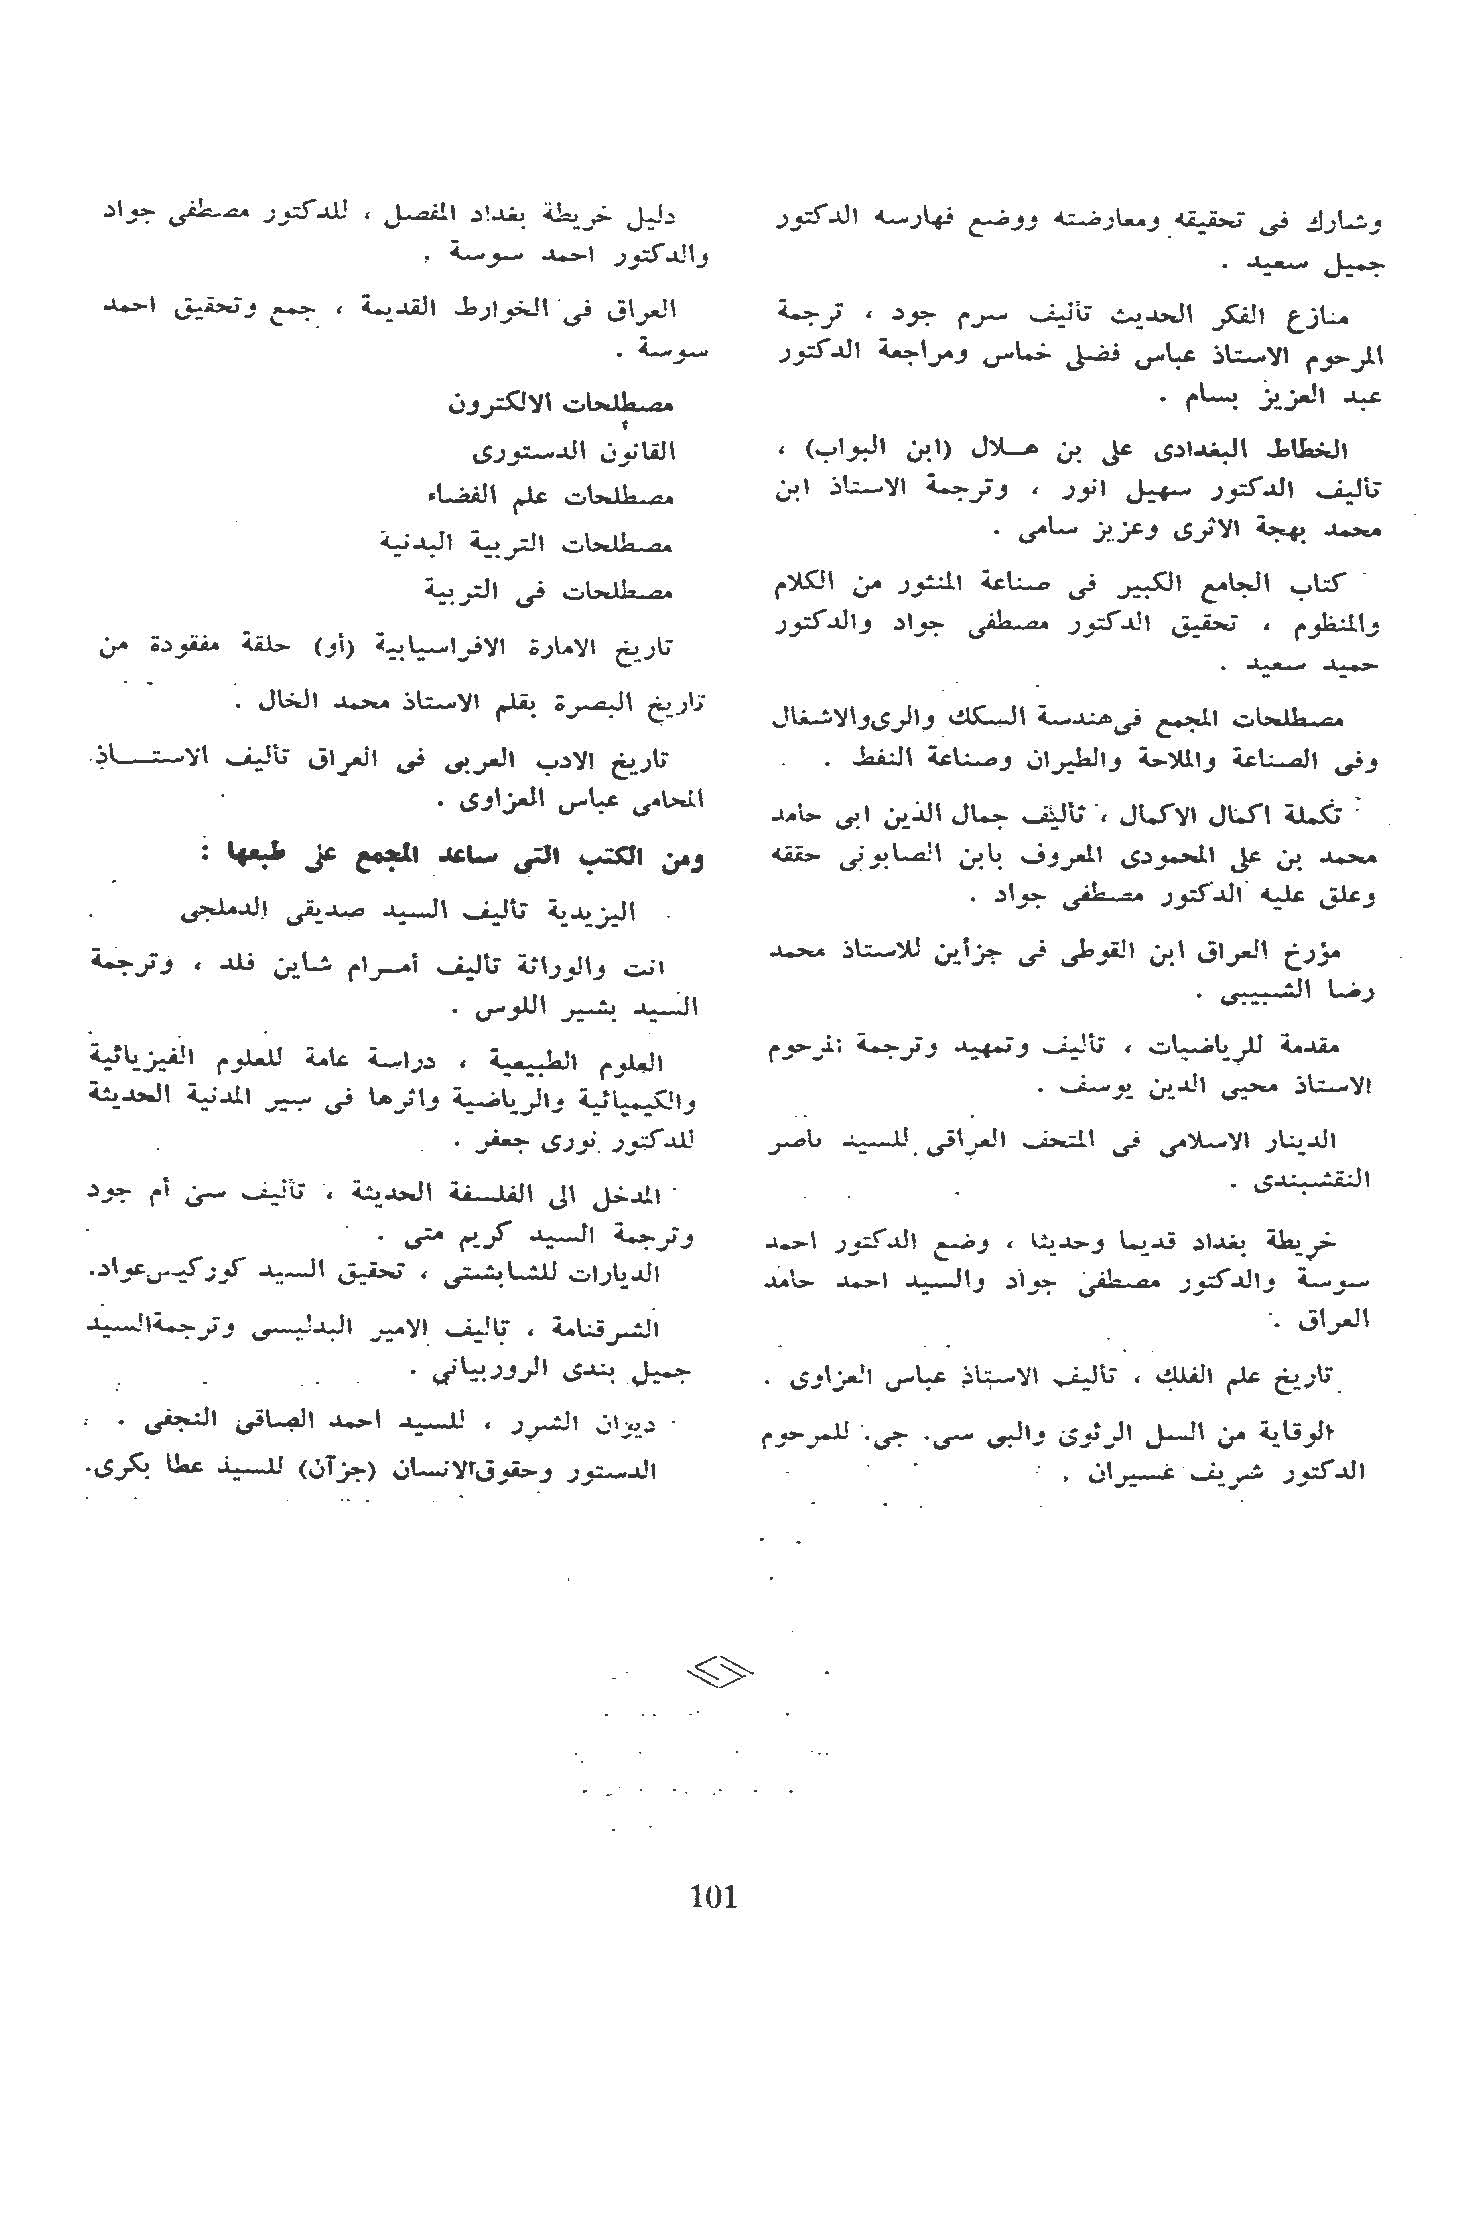 وشارك فى تحقيقه ومعارضته ووضع فهارسه الدكتور
جميل سعيد .
منازع الفكر الحديث تأليف سرم جود ، ترجمة
المرحوم الاستاذ عباس فضلى خماس ومراجعة الدكتور
عبد العزيز بسام .
الخطاط البغدادى على بن هــلال (ابن البواب) ،
تأليف الدكتور سهيل انور ، وترجمة الاستاذ ابن
محمد بهجة الاثرى وعزيز سامى .
كتاب الجامع الكبير فى صناعة المنثور من الكلام
والمنظوم ، تحقيق الدكتور مصطفى جواد والدكتور
حميد سعيد .
مصطلحات المجمع فىهندسة السكك والرىوالاشغال
وفى الصناعة والملاحة والطيران وصناعة النفط .
تكملة اكمال الاكمال ، تأليف جمال الدين ابى حامد
محمد بن على المحمودى المعروف بابن الصابونى حققه
وعلق عليه الدكتور مصطفى جواد .
مؤرخ العراق ابن الفوطى فى جزأين للاستاذ محمد
رضا الشبيبى .
مقدمة للرياضيات ، تأليف وتمهيد وترجمة المرحوم
الاستاذ محيى الدين يوسف .
الدينار الاسلامى فى المتحف العراقى للسيد ناصر
النقشبندى .
خريطة بغداد قديما وحديثا ، وضع الدكتور احمد
سوسة والدكتور مصطفى جواد والسيد احمد حامد
العراق .
تاريخ علم الفلك ، تأليف الاستاذ عباس العزاوى .
الوقاية من السل الرئوى والبى سى. جى. للمرحوم
الدكتور شريف عسيران .
دليل خريطة بغداد المفصل ، للدكتور مصطفى جواد
والدكتور احمد سوسة .
العراق فى الخوارط القديمة ، جمع وتحقيق احمد
سوسة .
مصطلحات الالكترون
القانون الدستورى
مصطلحات علم الفضاء
مصطلحات التربية البدنية
مصطلحات فى التربية
تاريخ الامارة الافراسيابية (أو) حلقة مفقودة من
تاريخ البصرة بقلم الاستاذ محمد الخال .
تاريخ الادب العربى فى العراق تأليف الاستــاذ
المحامى عباس العزاوى .
ومن الكتب التى ساعد المجمع على طبعها :
اليزيدية تأليف السيد صديقى الدملجى
انت والوراثة تأليف أمـرام شاين فلد ، وترجمة
السيد بشير اللوسى .
العلوم الطبيعية ، دراسة عامة للعلوم الفيزيائية
والكيميائية والرياضية واثرها فى سير المدنية الحديثة
للدكتور نورى جعفر .
المدخل الى الفلسفة الحديثة ، تأليف سى أم جود
وترجمة السيد كريم متى .
الديارات للشابشتى ، تحقيق السيد كوركيسعواد.
الشرفنامة ، تاليف الامير البدليسى وترجمةالسيد
جميل بندى الروربياني .
ديوان الشرر ، للسيد احمد الصافى النجفى .
الدستور وحقوقالانسان (جزآن) للسيد عطا بكرى.
101